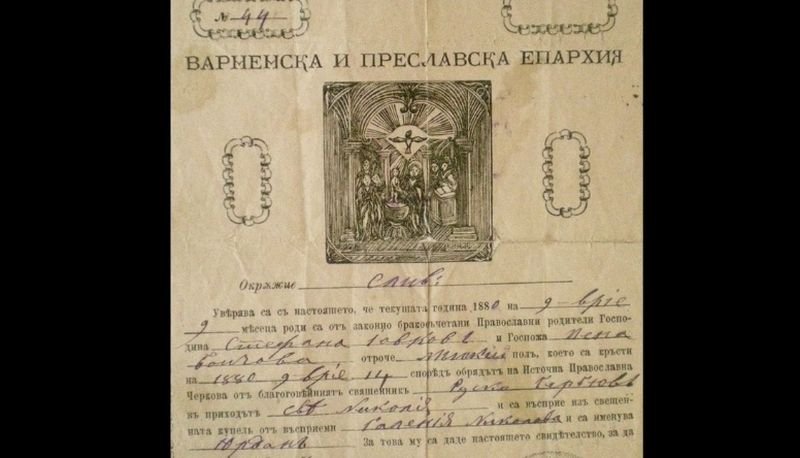 № 44
ВАРНЕНСКА И ПРЕСЛАВСКА ЕПАРХИЯ
Окрѫжие Слив:
Увѣрява са съ настоящето, че текущата година 1880 на 9-вріе
9 мѣсеца роди са отъ законно бракосъчетани Православни родители Госпо-
дина Стефана и Госпожа Пена
отроче Мѫжкий полъ, което са кръсти
на 1880 9 вріе 14 споредъ обрядътъ на Источна Православна
Черкова отъ благоговѣйниятъ священникъ Руска
въ приходътъ Св. Николія и са въсприе изъ свещен-
ната купель отъ въсприемн Николова и са именува
Юрданъ За това му са даде настоящето свидѣтелство, за да